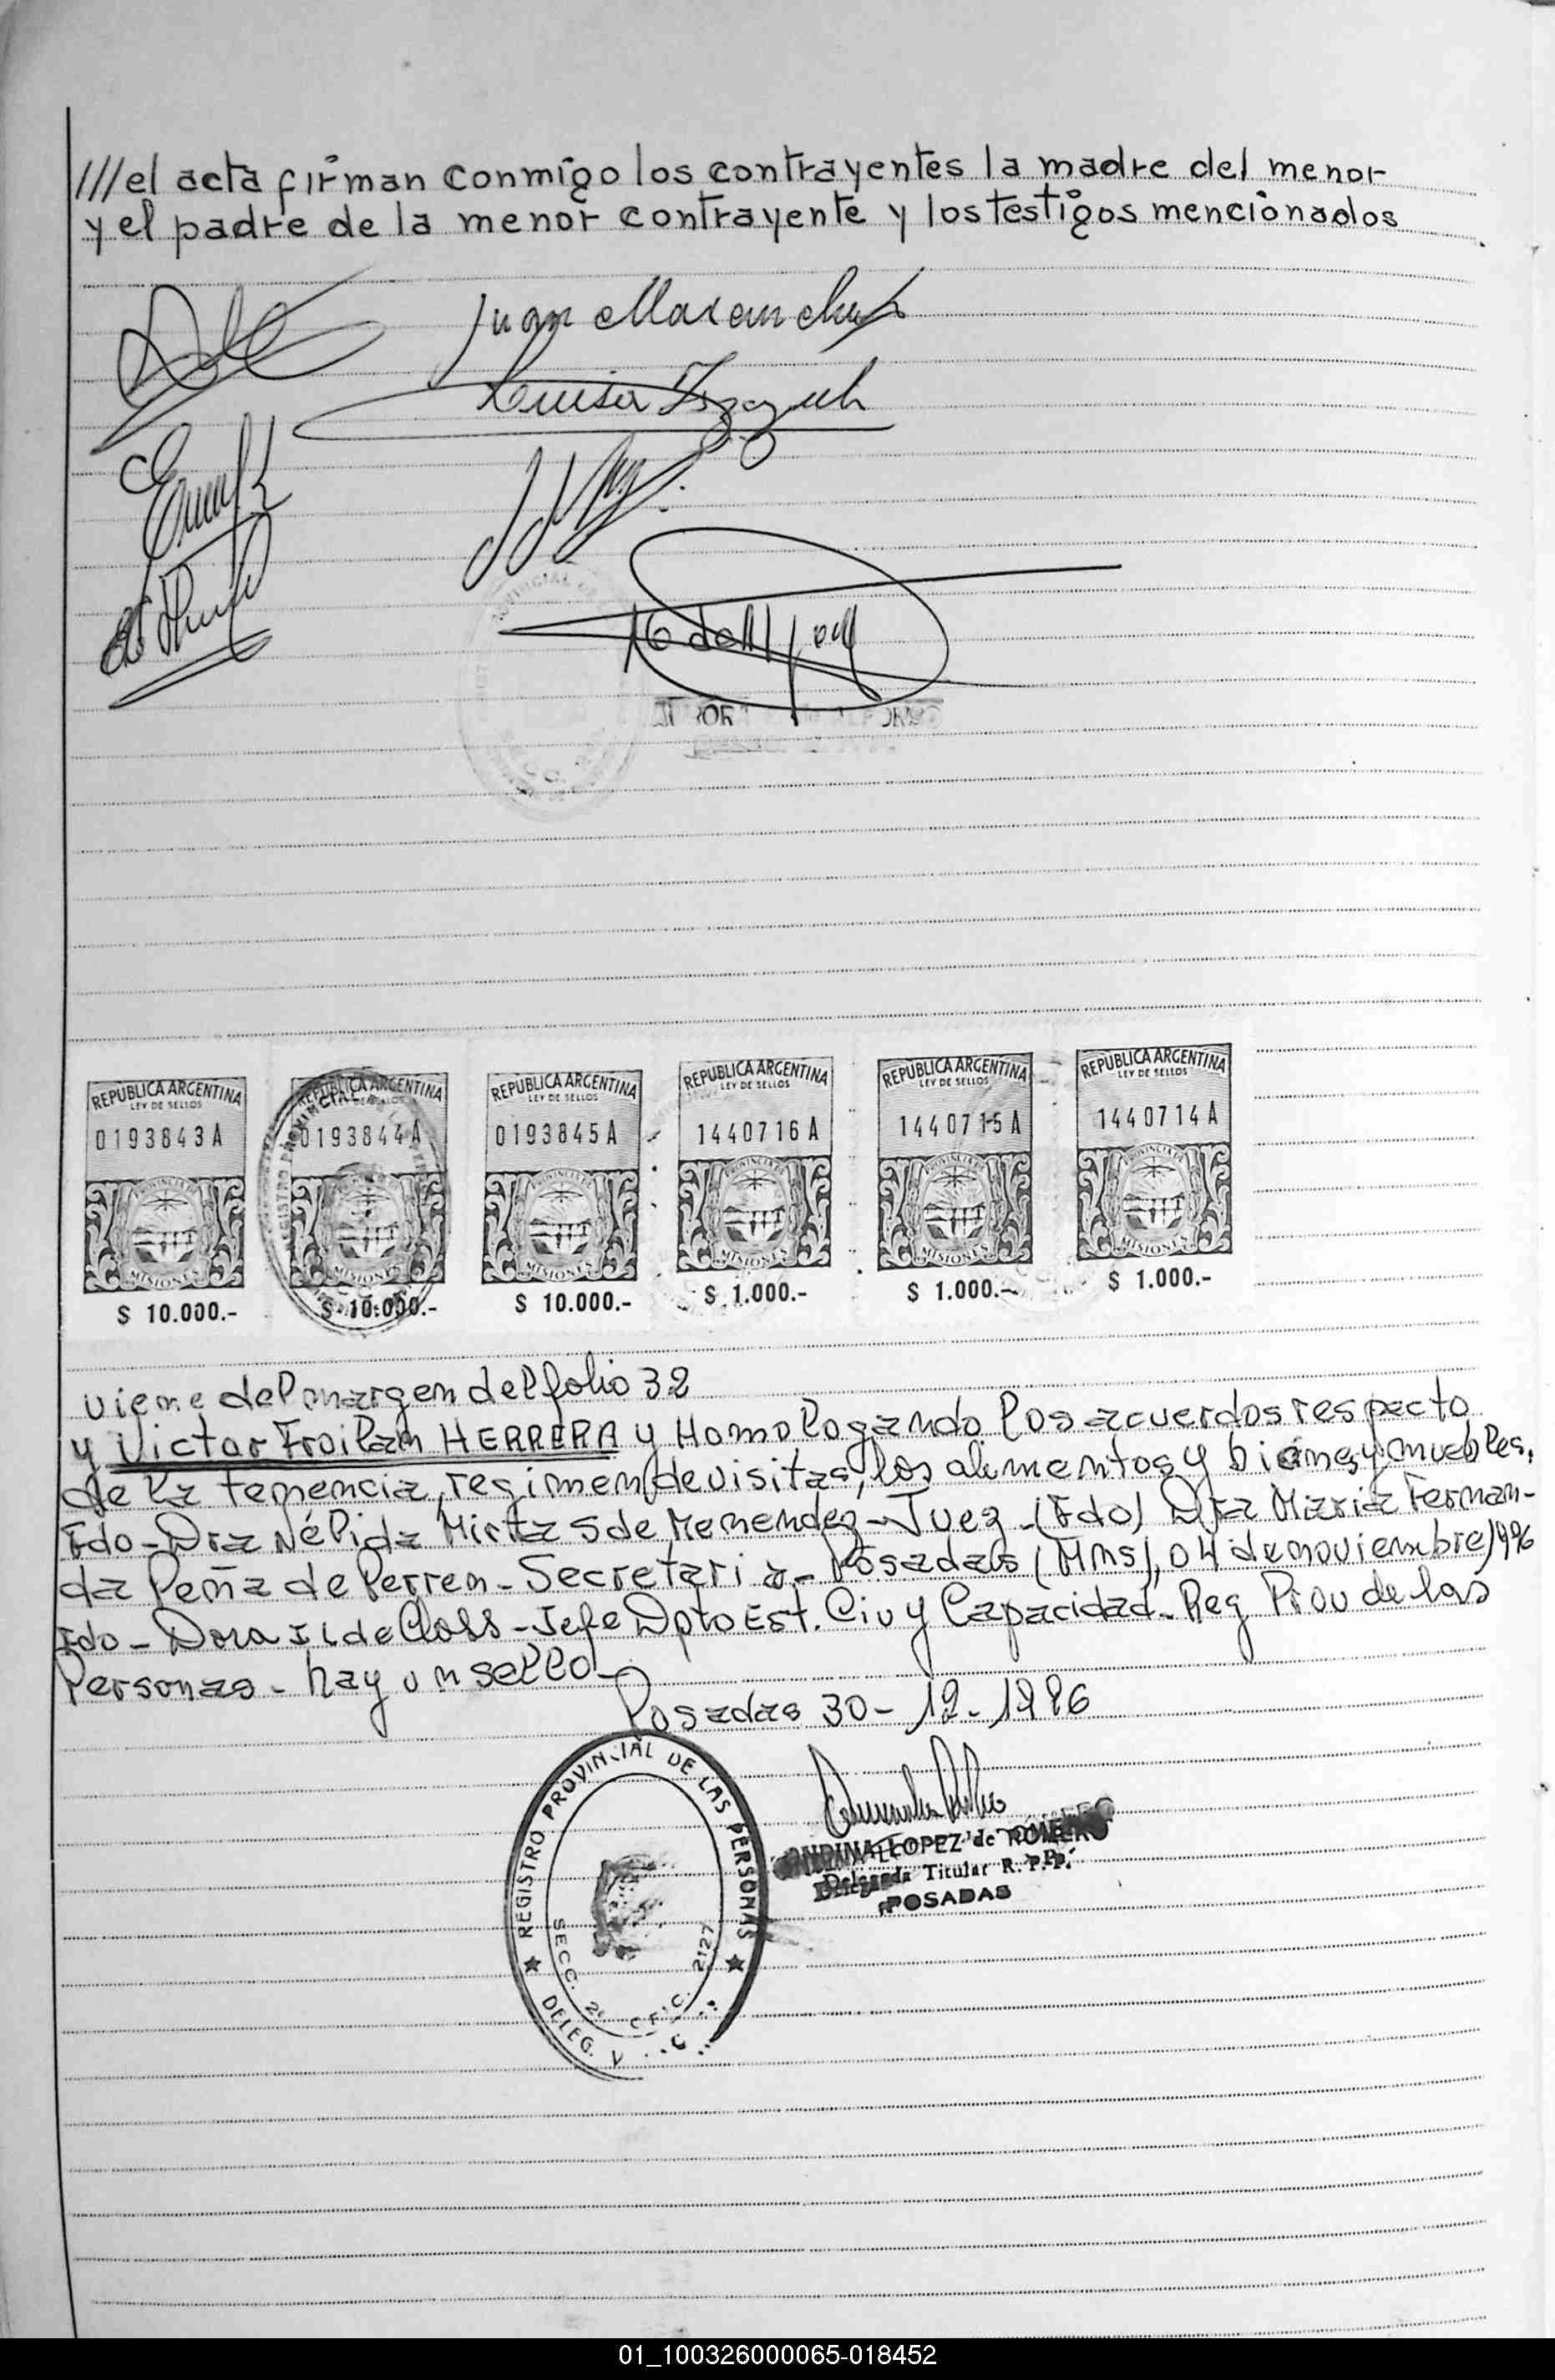 ///el acta firman conmigo los contrayentes la madre del menor
y el padre de la menor contrayente y los testigos mencionados
Juan
Luisa
REPUBLICA ARGENTINA
LEY DE SELLOS
0193843A
PROVINCIA DE
MISIONES
$ 10.000.-
REPUBLICA ARGENTINA
LEY DE SELLOS
0193844A
MISIONES
$ 10.000.-
REPUBLICA ARGENTINA
LEY DE SELLOS
0193845A
PROVINCIA DE
MISIONES
$ 10.000.-
REPUBLICA ARGENTINA
LEY DE SELLOS
1440716A
PROVINCIA DE
MISIONES
$ 1.000.-
REPUBLICA ARGENTINA
LEY DE SELLOS
1440715A
PROVINCIA DE
MISIONES
$ 1.000.-
REPUBLICA ARGENTINA
LEY DE SELLOS
1440714A
PROVINCIA DE
MISIONES
$ 1.000.-
viene del margen del folio 32
y Victor Froilan HERRERA y Homologando los acuerdos respecto
de la tenencia, regimen de visitas, los alimentos y bienes y muebles.
Fdo-Dra Nélida Mirta S de Menendez-Juez-(Fdo) Dra Maria Fernan-
da Peña de Perren-Secretaria-Posadas (Mns), 04 de noviembre/996
Fdo-Dora I L de Closs-Jefe Dpto Est. Civ y Capacidad-Reg Prov de las
Personas-hay un sello-
Posadas 30-12-1996
REGISTRO PROVINCIAL DE LAS PERSONAS
SECC. 2ª OFIC. 2127
DELEG.
ONDINA LOPEZ de ROMERO
Delegada Titular R. P. P.
POSADAS
01_100326000065-018452